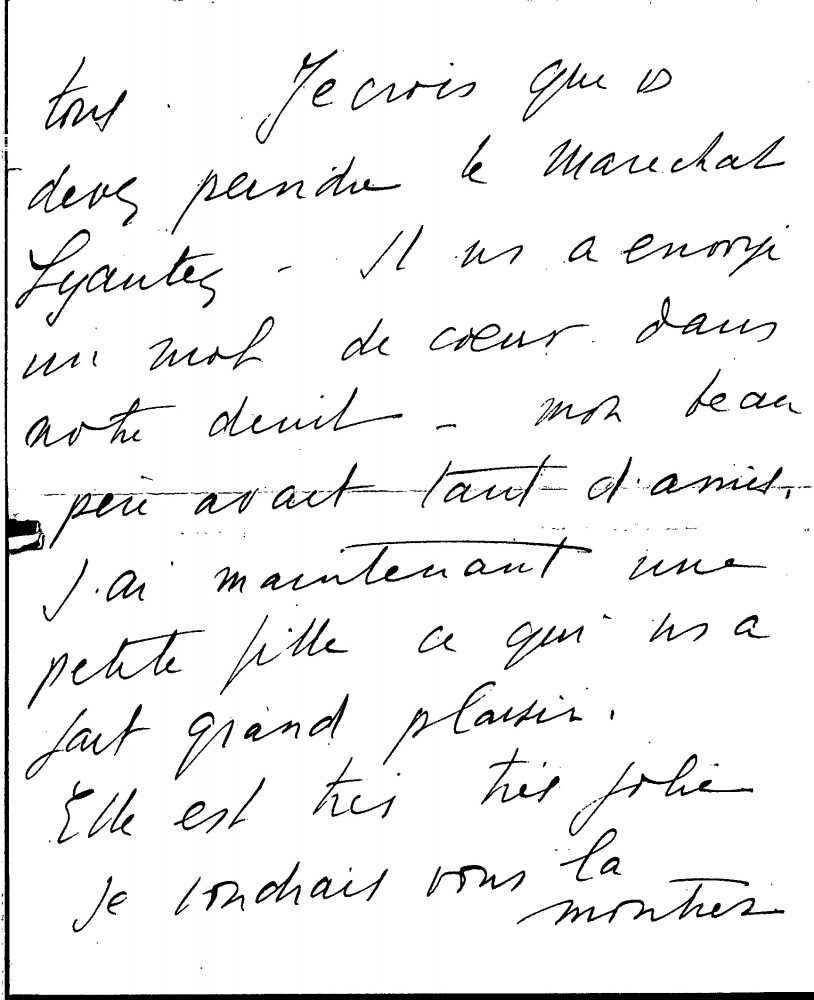 tous. Je crois que vs
devez peindre le Marechal
Lyautey - Il ns a envoyé
un mot de coeur dans
notre deuil - mon beau
père avait tant d'amis.
J'ai maintenant une
petite fille ce qui ns a
fait grand plaisir.
Elle est très très jolie
Je voudrais vous la
montrer